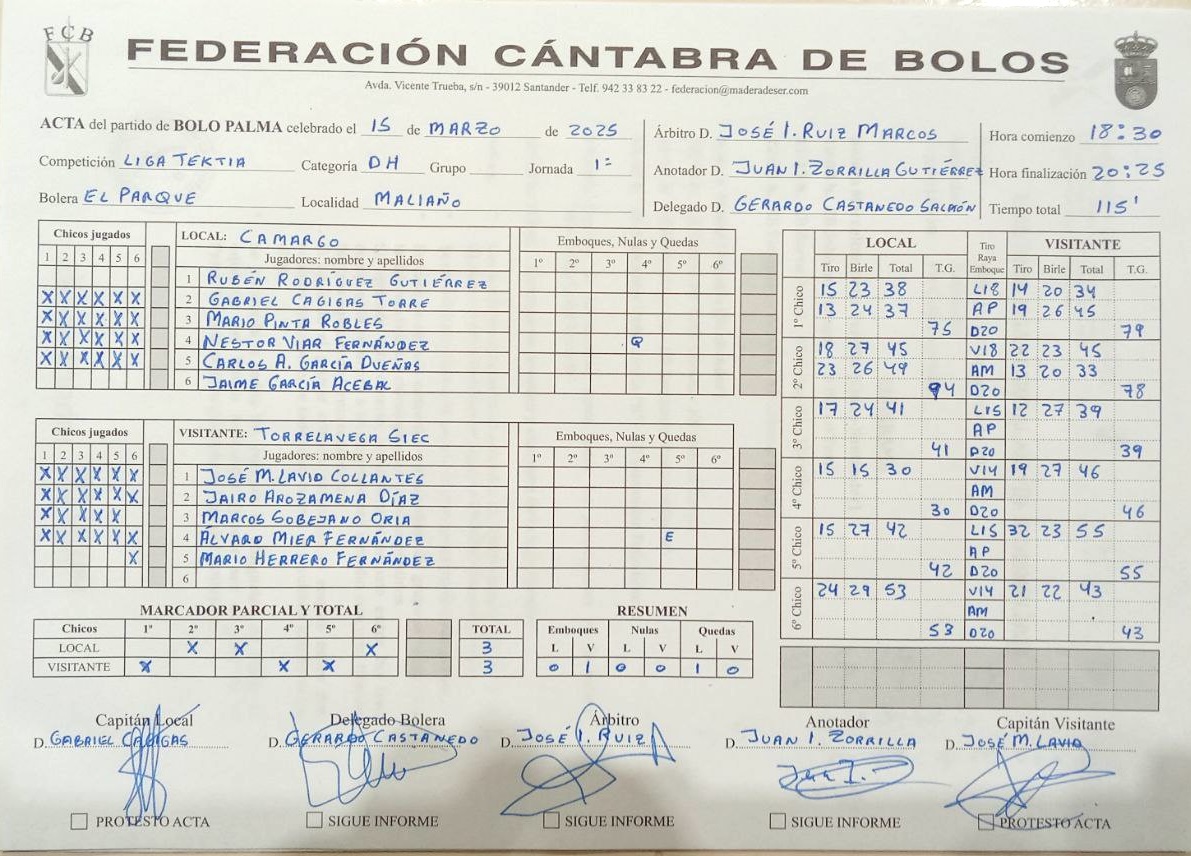 FCB
FEDERACIÓN CÁNTABRA DE BOLOS
Avda. Vicente Trueba, s/n - 39012 Santander - Telf. 942 33 83 22 - federacion@maderadeser.com
ACTA del partido de BOLO PALMA celebrado el 15 de MARZO de 2025
Competición LIGA TEKTIA Categoría DH Grupo Jornada 1ª
Bolera EL PARQUE Localidad MALIAÑO
Árbitro D. JOSÉ I. RUIZ MARCOS
Anotador D. JUAN I. ZORRILLA GUTIÉRREZ
Delegado D. GERARDO CASTANEDO SALMÓN
Hora comienzo 18:30
Hora finalización 20:25
Tiempo total 115'
Chicos jugados LOCAL: CAMARGO Emboques, Nulas y Quedas
1 2 3 4 5 6 Jugadores: nombre y apellidos 1º 2º 3º 4º 5º 6º
1 RUBÉN RODRÍGUEZ GUTIÉRREZ
X X X X X X 2 GABRIEL CAGIGAS TORRE
X X X X X X 3 MARIO PINTA ROBLES
X X X X X X 4 NESTOR VIAR FERNÁNDEZ Q
X X X X X X 5 CARLOS A. GARCÍA DUEÑAS
6 JAIME GARCÍA ACEBAL
Chicos jugados VISITANTE: TORRELAVEGA SIEC Emboques, Nulas y Quedas
1 2 3 4 5 6 Jugadores: nombre y apellidos 1º 2º 3º 4º 5º 6º
X X X X X X 1 JOSÉ M. LAVID COLLANTES
X X X X X X 2 JAIRO AROZAMENA DÍAZ
X X X X X 3 MARCOS SOBEJANO ORIA
X X X X X X 4 ÁLVARO MIER FERNÁNDEZ E
X 5 MARIO HERRERO FERNÁNDEZ
6
LOCAL Tiro Raya Emboque VISITANTE
Tiro Birle Total T.G. Tiro Birle Total T.G.
1º Chico 15 23 38 L18 14 20 34
13 24 37 AP 19 26 45
75 D20 79
2º Chico 18 27 45 V18 22 23 45
23 26 49 AM 13 20 33
94 D20 78
3º Chico 17 24 41 L15 12 27 39
AP
41 D20 39
4º Chico 15 15 30 V14 19 27 46
AM
30 D20 46
5º Chico 15 27 42 L15 32 23 55
AP
42 D20 55
6º Chico 24 29 53 V14 21 22 43
AM
53 D20 43
MARCADOR PARCIAL Y TOTAL
Chicos 1º 2º 3º 4º 5º 6º TOTAL
LOCAL X X X 3
VISITANTE X X X 3
RESUMEN
Emboques Nulas Quedas
L V L V L V
0 1 0 0 1 0
Capitán Local
D. GABRIEL CAGIGAS
Delegado Bolera
D. GERARDO CASTANEDO
Árbitro
D. JOSÉ I. RUIZ
Anotador
D. JUAN I. ZORRILLA
Capitán Visitante
D. JOSÉ M. LAVID
PROTESTO ACTA
SIGUE INFORME
SIGUE INFORME
SIGUE INFORME
PROTESTO ACTA